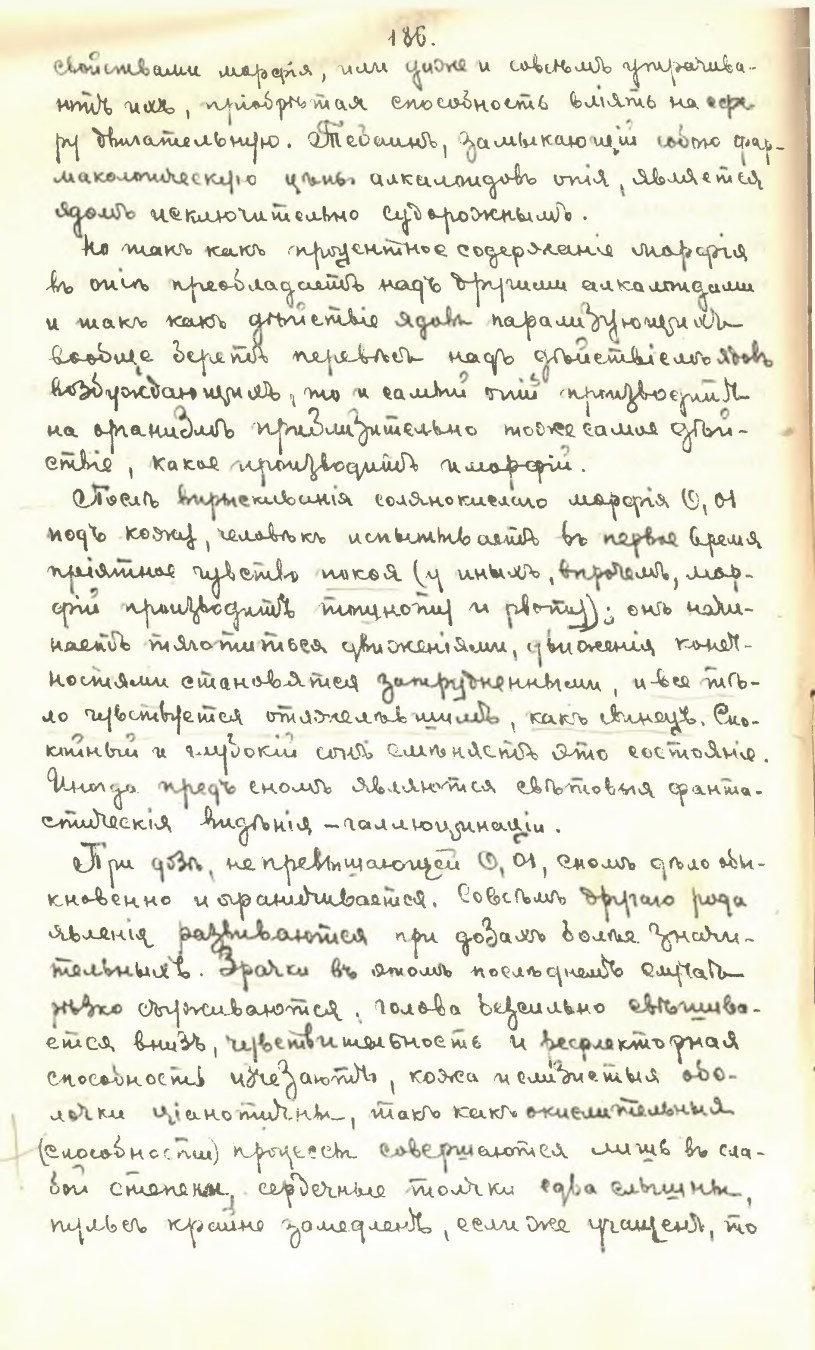 186.
свойствами морфія, или даже и совсѣмъ утрачива-
ютъ ихъ, пріобрѣтая способность вліять на сфе-
ру двигательную. Тебаинъ, замыкающій собою фар-
макологическую цѣпь алкалоидовъ опія, является
ядомъ исключительно судорожнымъ.
Но такъ какъ процентное содержаніе морфія
въ опіи преобладаетъ надъ другими алкалоидами
и такъ какъ дѣйствіе ядовъ парализующихъ
вообще беретъ перевѣсъ надъ дѣйствіемъ ядовъ
возбуждающихъ, то и самый опій производитъ
на организмъ приблизительно тоже самое дѣй-
ствіе, какое производитъ и морфій.
Послѣ впрыскиванія солянокислаго морфія 0,01
подъ кожу, человѣкъ испытываетъ въ первое время
пріятное чувство покоя (у иныхъ, впрочемъ, мор-
фій производитъ тошноту и рвоту); онъ начи-
наетъ тяготиться движеніями, движенія конеч-
ностями становятся затрудненными, и все тѣ-
ло чувствуется отяжелѣвшимъ, какъ свинецъ. Спо-
койный и глубокій сонъ смѣняетъ это состояніе.
Иногда предъ сномъ являются свѣтовыя фанта-
стическія видѣнія – галлюцинаціи.
При дозѣ, не превышающей 0,01, сномъ дѣло обы-
кновенно и ограничивается. Совсѣмъ другаго рода
явленія развиваются при дозахъ болѣе значи-
тельныхъ. Зрачки въ этомъ послѣднемъ случаѣ
рѣзко съуживаются, голова безсильно свѣшива-
ется внизъ, чувствительность и рефлекторная
способность изчезаютъ, кожа и слизистыя обо-
лочки ціанотичны, такъ какъ окислительныя
(способности) процессы совершаются лишь въ сла-
бой степени, сердечные толчки едва слышны,
пульсъ крайне замедленъ, если же учащенъ, то